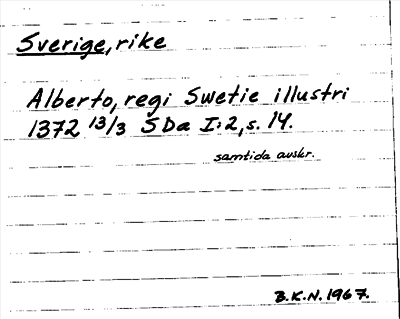 Sverige, rike
Alberto, regi Swetie illustri
1372 13/3 SDa I:2, s. 14.
samtida avskr.
B.K.N. 1967.